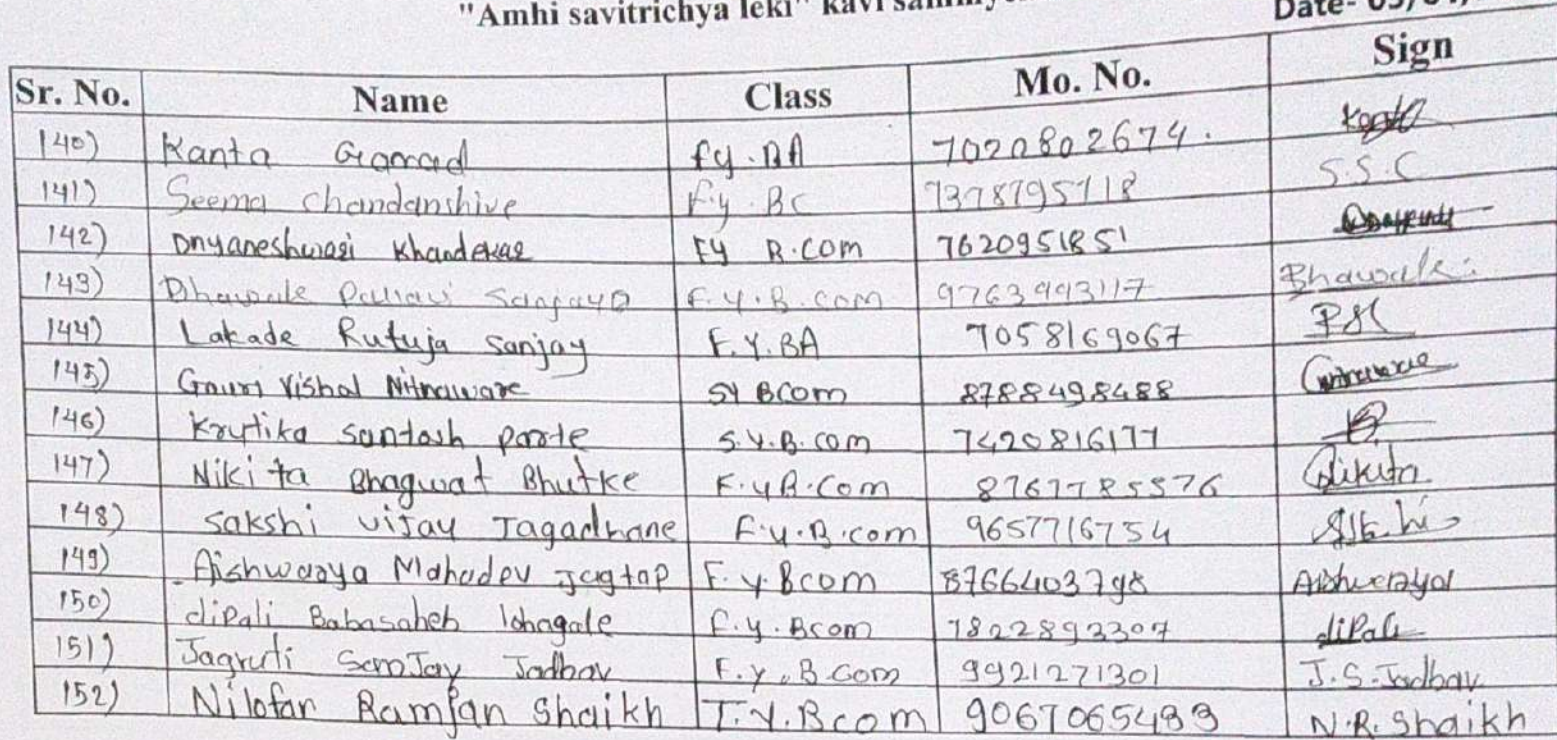 "Amhi savitrichya leki" kavi
Date- 05/
Sr. No. Name Class Mo. No. Sign
140) Kanta fy.BA 7020802674. Kanta
141) Seema Chandanshive F.y.BC S.S.C
142) Dnyaneshwari Khandekar FY B.COM 7620951851
143) Bhawale Pallavi F.Y.B.com Bhawale
144) Lakade Rutuja Sanjay F.Y.BA 7058169067
145) Gauri Vishal Nitnaware SY BCom 8788498488
146) Krutika santosh parte S.Y.B.com 7420816177
147) Nikita Bhagwat Bhutke F.yB.Com 8767785576 Nikita
148) Sakshi vijay Jagadhane F.y.B.com 9657716754
149) Aishwarya Mahadev Jagtap F.y.Bcom 8766403798 Aishwarya
150) dipali Babasaheb lohagale F.y.Bcom 7822893307 dipali
151) Jagruti Sanjay Jadhav F.y.B.com 9921271301 J.S.Jadhav
152) Nilofar Ramjan Shaikh T.Y.Bcom 9067065483 N.R.Shaikh